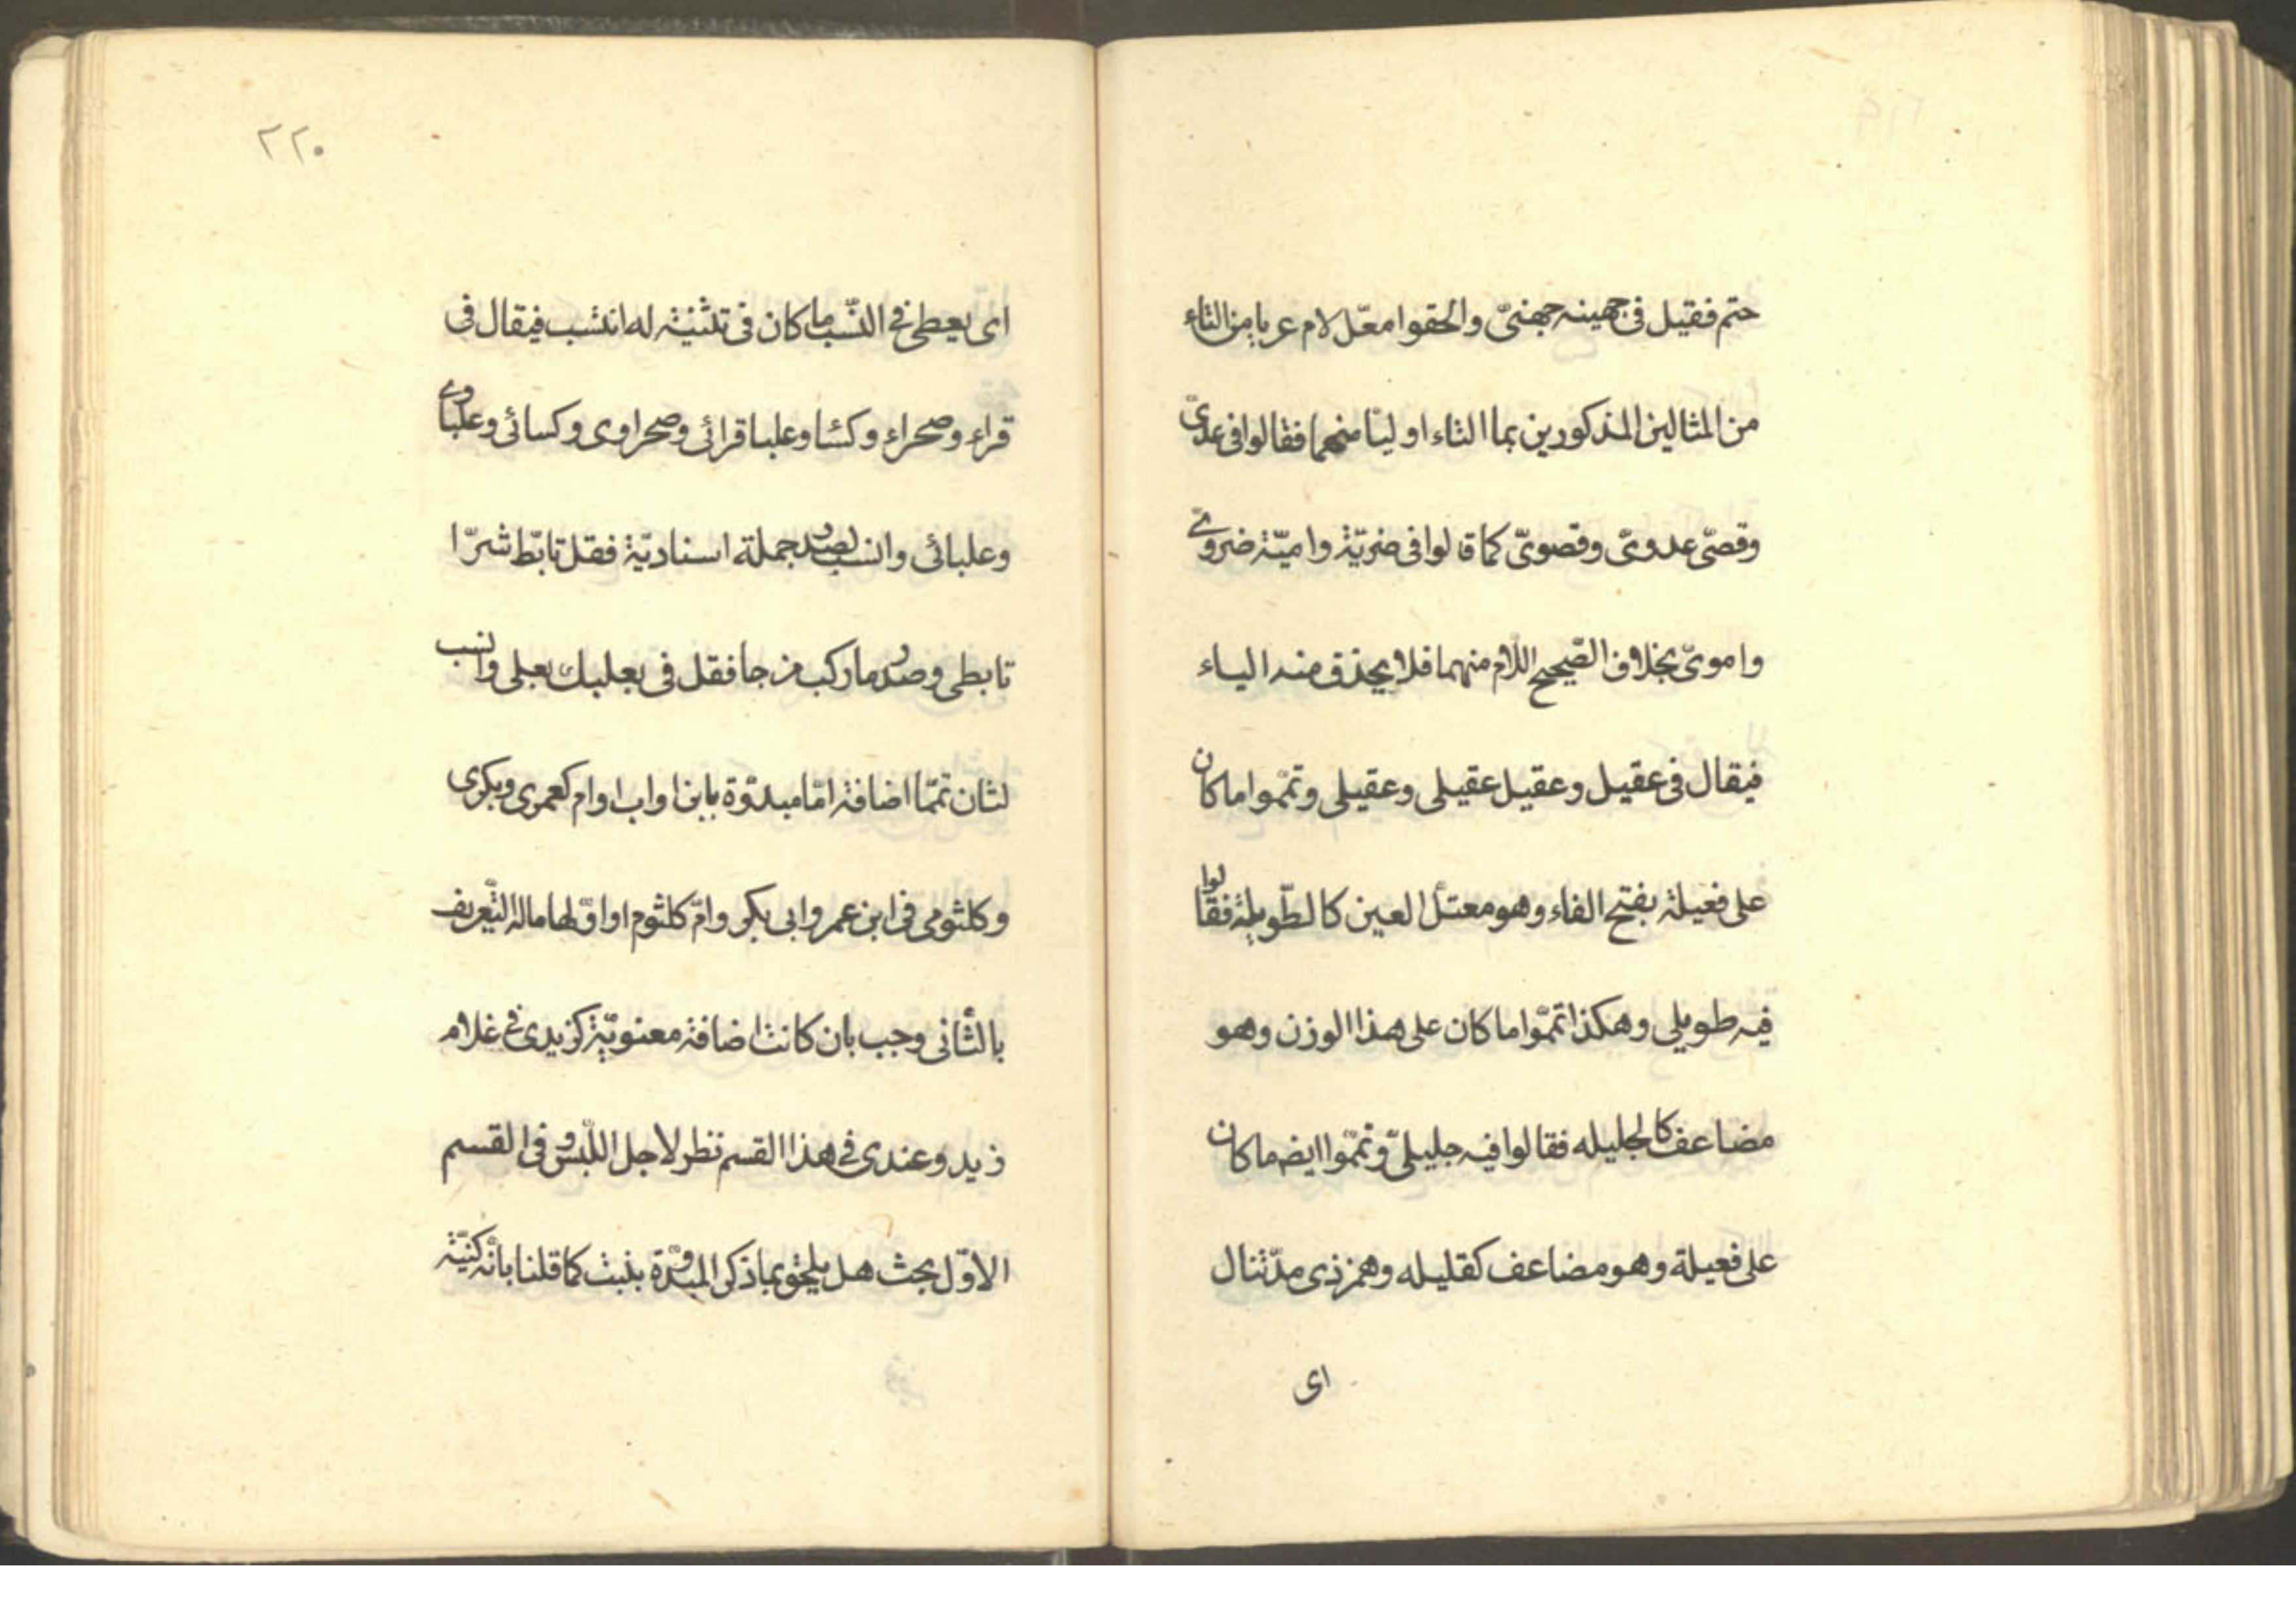 حتم فقيل فى جهينه جهنىّ والحقوا معّل لام عريا من التاء
من المثالين المذكورين بما التاء اوليا منهما فقالوا فى عدىّ
وقصّى عدوىّ وقصوىّ كما قالوا فى ضريّة واميّة ضروىّ
واموىّ بخلاف الصّحيح اللّام منهما فلا يحذف منه الياء
فيقال فى عقيل وعقيل عقيلى وعقيلى وتمّموا ما كان
على فعيلة بفتح الفاء وهو معتلّ العين كالطّويلة فقالوا
فيه طويلى وهكذا تمّموا ما كان على هذا الوزن وهو
مضاعف كالجليله فقالوا فيه جليلىّ وتمّموا ايضه ما كان
على فعيلة وهو مضاعف كقليله وهمز ذى مدّ تنال
اى
٢٢٠
اى يعطى فى النّسب ما كان فى تثنية له انتسب فيقال فى
قراء وصحراء وكسا وعلبا قرائى وصحراوى وكسائى وعلباوى
وعلبائى وانسب لصدر جملة اسناديّة فقل تابّط شرّا
تابطى وصدر ما ركب مزجا فقل فى بعلبك بعلى وانسب
لثان تمّما اضافة امّا مبدوّة بابن او اب او ام كعمرى وبكرى
وكلثومى فى ابن عمر وابى بكر وامّ كلثوم او اوّلها ماله التّعريف
بالثّانى وجب بان كانت اضافة معنويّة كزيدى فى غلام
زيد وعندى فى هذا القسم نظر لاجل اللّبس وفى القسم
الاوّل بحث هل يلحق بما ذكر المبدوّة ببنت كما قلنا بانّه كنيّة